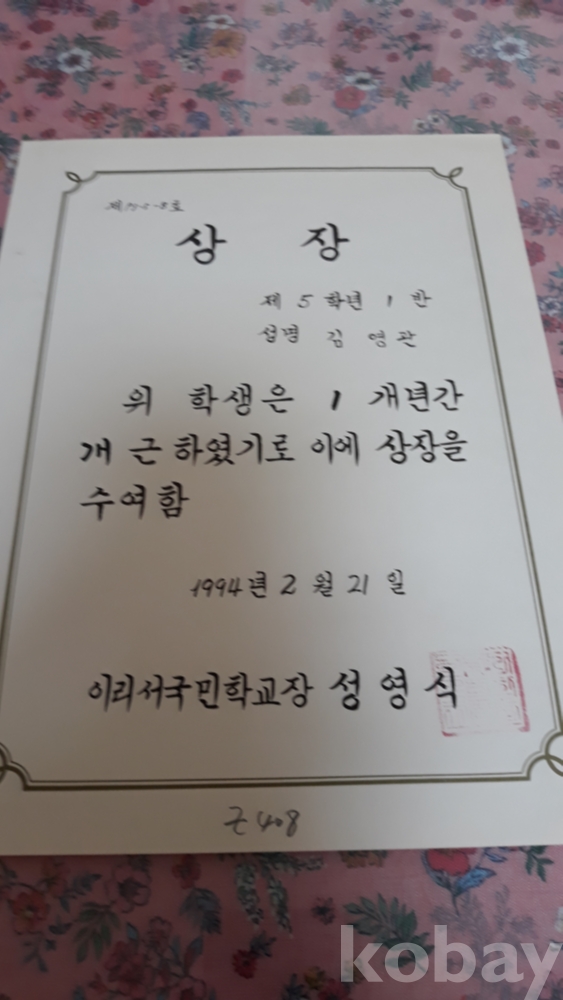 상 장
제 5 학년 1 반
성명 김 영 관
위 학생은 1 개년간
개 근 하였기로 이에 상장을
수여함
1994 년 2 월 21 일
이리서국민학교장 성 영 식
근 408
kobay